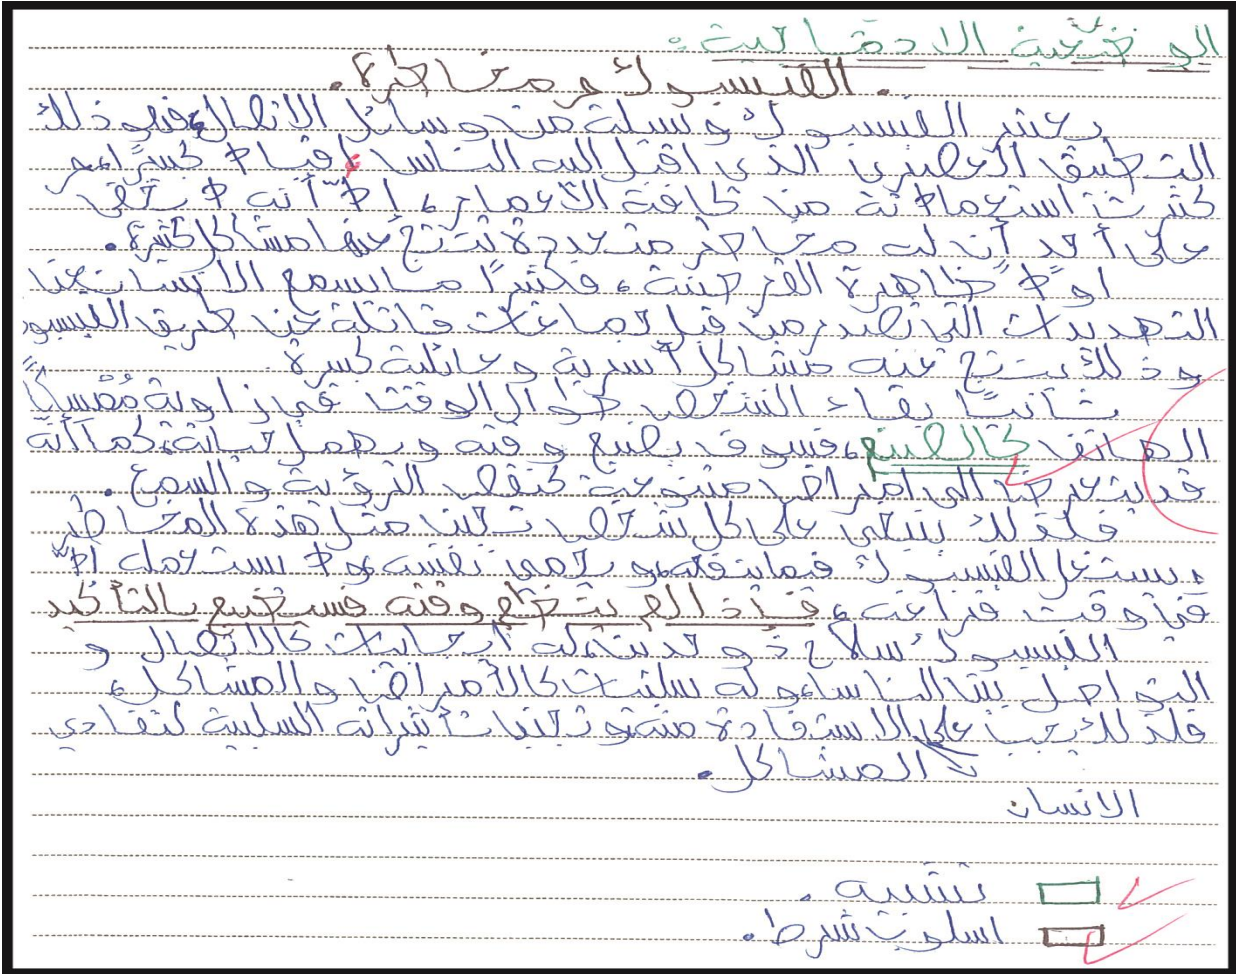 الوضعية الادماجية:
الفيسبوك ومخاطره.
يعتبر الفيسبوك وسيلة من وسائل الاتصال، فهو ذلك
التطبيق العصري الذي اقبل اليه الناس إقبالا كبيرًا، و
كثرت استعمالاته من كافة الأعمار، إلاّ أنه لا يخفى
على أحد أن له مخاطر متعددة تنتج عنها مشاكل كثيرة.
اولًا ظاهرة القرصنة، فكثيرًا ما يسمع الانسان عن
التهديدات التي تصدر من قبل جماعات قاتلة عن طريق الفيسبوك
وذلك ينتج عنه مشاكل أسرية وعائلية كبيرة.
ثانيًا بقاء الشخص طوال الوقت في زاوية مُمْسِكًا
الهاتف كالصنم، فسوف يضيع وقته ويهمل حياته، كما أنّه
قد يتعرض الى امراض متنوعة كنقص الرؤية والسمع.
فلذلك ينبغي على كل شخص تجنب مثل هذه المخاطر
ويستغل الفيسبوك فيما ينفعه، و يحمي نفسه، ولا يستعمله الاّ
في وقت فراغه، فإذا لم ينظم وقته فسيضيع بالتأكيد
الفيسبوك سلاح ذو حدين، له ايجابيات كالاتصال و
التواصل بين الناس، وله سلبيات كالأمراض والمشاكل،
فلذلك يجب على الاستفادة منه، و تجنب تأثيراته السلبية لتفادي
المشاكل.
الانسان
تشبيه.
اسلوب شرط.